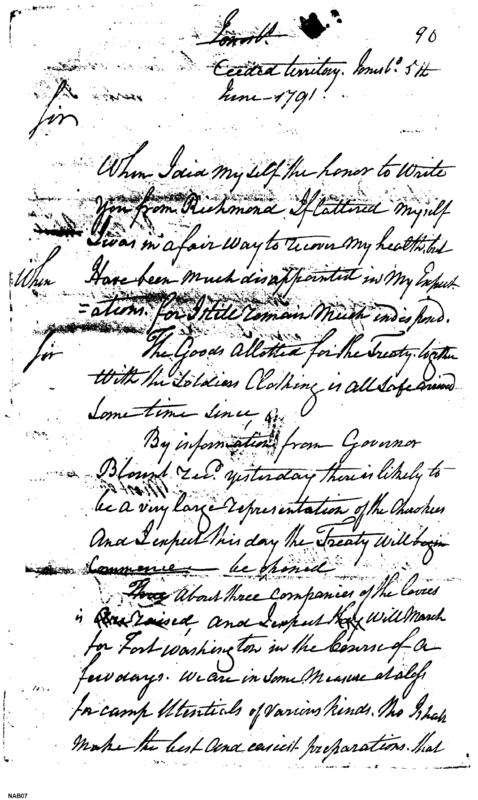 Jonesbo.
90
Ceeded territory. Jonesbo. 5th
June 1791.
Sir
When I did my self the honor to Write
You from Richmond I flattered myself
I was in a fair way to recover my health, but
When Have been much disappointed in My Expect
=ations. for I stile remain Much indespond.
Sir The Goods allotted for the Treaty, together
With the Soldiers Clothing is all Safe arived
Some time Since,
By information from Governor
Blount recd. yesterday there is likely to
be a very large representation of the Cherokees
And I expect this day the Treaty will begin
Commence be opened
Three About three companies of the Levies
is Are raised, And I expect they Will March
for Fort Washington in the Course of a
few days. We are in Some Measure at a loss
for camp Utentials of various kinds. Tho I shall
make the best and easiest preparations. that
NAB07